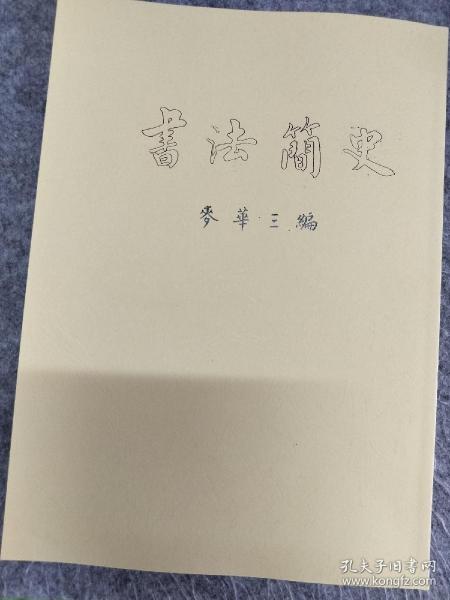 書法簡史
麥華三編
孔夫子旧书网
www.kongfz.com